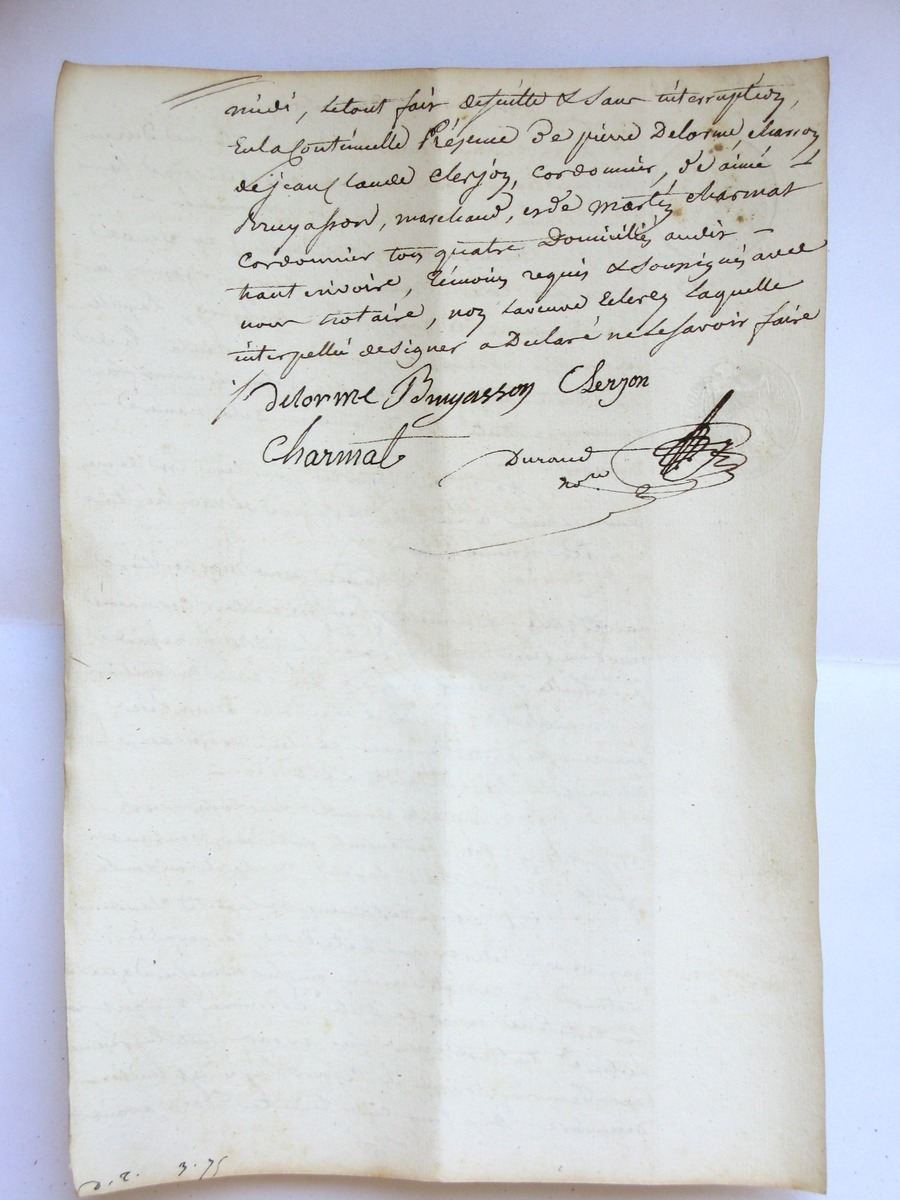 midi, letout fait desuitte & sans interruption,
Enla Continuelle Présence de pierre Delorme charron
dejean Claude Clerjon, cordonnier, d'aimé
Bruyasson, marchand, et de Martin charmat
cordonnier tous quatre Domiciliés audit
haut rivoire, témoins requis & soussignés avec
nous Notaire, non laveuve laquelle
interpellée designer a Déclaré nelesavoir faire
Delorme Bruyasson Clerjon
Charmat
Durand
nore
D. r. 3. 75